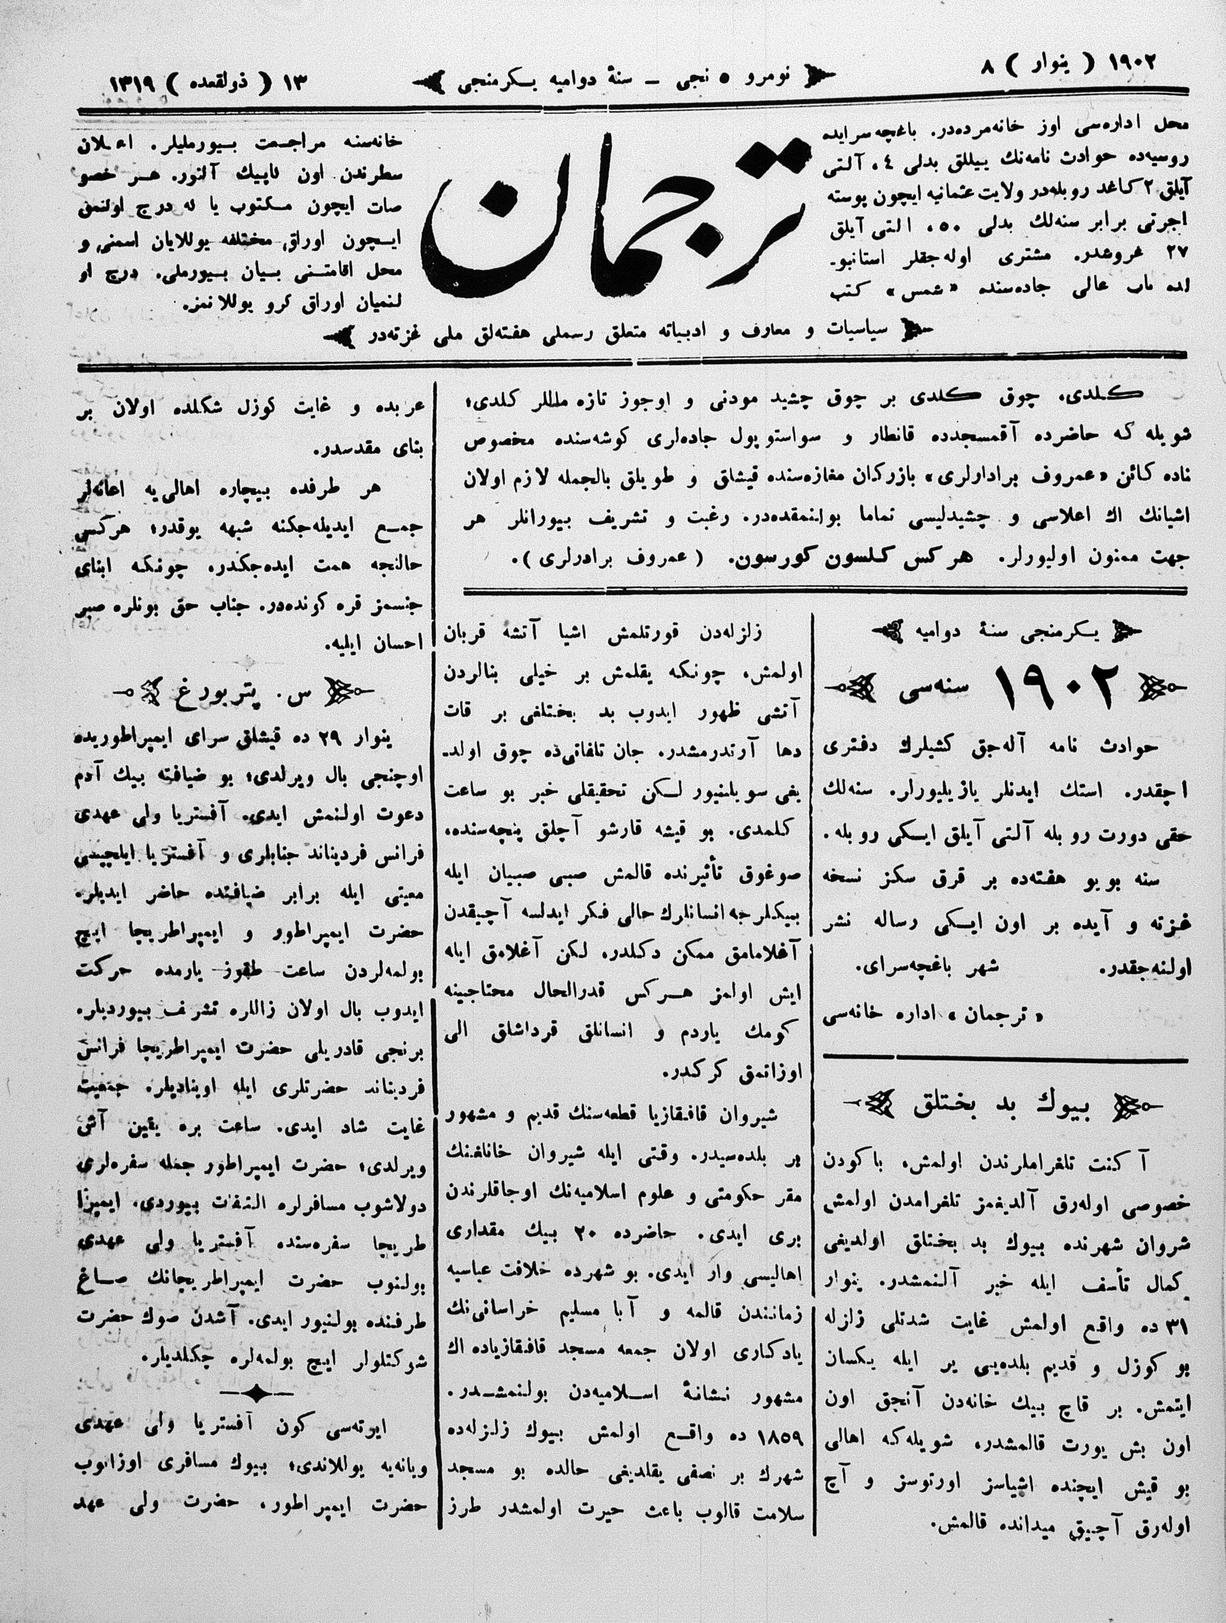 ١٩٠٢ ( ینوار ) ٨
نومرو ٥ نجی – سنهٔ دوامیه یکرمنجی
١٣ ( ذولقعده ) ١٣١٩
محل اداره‌سی اوز خانه‌مرده‌در. باغچه سرایده
روسیه‌ده حوادث نامه‌نك ییللق بدلی ٤، آلتی
آیلق ٢ كاغد روبله‌در ولایت عثمانیه ایچون پوسته
اجرتی برابر سنه‌لك بدلی ٥٠، التی آیلق
٢٧ غروشدر. مشتری اوله‌جقلر استانبو-
لده باب عالی جاده‌سنده «شمس» كتب
ترجمان
خانه‌سنه مراجعت بیورملیلر. اعلان
سطرندن اون كاپیك آلنور. هر خصو
صات ایچون مكتوب یا له درج اولنمق
ایچون اوراق مختلفه یوللایان اسمنی و
محل اقامتنی بیان بیورملی. درج او
لنمیان اوراق كرو یوللانمز.
سیاسیات و معارف و ادبیاته متعلق رسملی هفته‌لق ملی غزته‌در
كلدی، چوق كلدی بر چوق چشید مودنی و اوجوز تازه ماللر كلدی؛
شویله كه حاضرده آقمسجدده قانطار و سواستوپول جاده‌لری كوشه‌سنده مخصوص
ناده كائن «عمروف برادارلری» بازركان مغازه‌سنده قیشلق و طویلق بالجمله لازم اولان
اشیانك اك اعلاسی و چشیدلیسی تماما بولنمقده‌در. رغبت و تشریف بیورانلر هر
جهت ممنون اولیورلر. هركس كلسون كورسون. ( عمروف برادرلری ).
یكرمنجی سنهٔ دوامیه
١٩٠٢ سنه‌سی
حوادث نامه آله‌جق كشیلرك دفتری
اچقدر. استك ایدنلر یازیلیورلر. سنه‌لك
حقی دورت روبله آلتی آیلق ایكی روبله.
سنه بویو هفته‌ده بر قرق سكز نسخه
غزته و آیده بر اون ایكی رساله نشر
اولنه‌جقدر. شهر باغچه‌سرای.
«ترجمان» اداره خانه‌سی
بیوك بد بختلق
آكنت تلغراملرندن اولمش، باكودن
خصوصی اوله‌رق آلدیغمز تلغرامدن اولمش
شروان شهرنده بیوك بد بختلق اولدیغی
كمال تأسف ایله خبر آلنمشدر. ینوار
٣١ ده واقع اولمش غایت شدتلی زلزله
بو كوزل و قدیم بلده‌یی یر ایله یكسان
ایتمش. بر قاچ بیك خانه‌دن آنجق اون
اون بش یورت قالمشدر، شویله‌كه اهالی
بو قیش ایچنده اشیاسز اورتوسز و آچ
اوله‌رق آچیق میدانده قالمش.
زلزله‌دن قورتلمش اشیا آتشه قربان
اولمش، چونكه یقلمش بر خیلی بنالردن
آتشی ظهور ایدوب بد بختلغی بر قات
دها آرتدرمشدر. جان تلفاتی‌ده چوق اولد-
یغی سویلنیور لكن تحقیقلی خبر بو ساعت
كلمدی. بو قیشه قارشو آچلق پنچه‌سنده،
صوغوق تأثیرنده قالمش صبی صبیان ایله
بیكلرجه انسانلرك حالی فكر ایدلسه آچیقدن
آغلامامق ممكن دكلدر. لكن آغلامق ایله
ایش اولمز هركس قدرالحال محتاجینه
كومك یاردم و انسانلق قرداشلق الی
اوزاتمق كركدر.
شیروان قافقازیا قطعه‌سنك قدیم و مشهور
بر بلده‌سیدر. وقتی ایله شیروان خانلغنك
مقر حكومتی و علوم اسلامیه‌نك اوجاقلرندن
بری ایدی. حاضرده ٢٠ بیك مقداری
اهالیسی وار ایدی. بو شهرده خلافت عباسیه
زمانندن قالمه و آبا مسلیم خراسانی‌نك
یادكاری اولان جمعه مسجد قافقازیاده اك
مشهور نشانهٔ اسلامیه‌دن بولنمشدر.
١٨٥٩ ده واقع اولمش بیوك زلزله‌ده
شهرك بر نصفی یقلدیغی حالده بو مسجد
سلامت قالوب باعث حیرت اولمشدر طرز
عربده و غایت كوزل شكلده اولان بر
بنای مقدسدر.
هر طرفده بیچاره اهالی‌یه اعانه‌لر
جمع ایدیله‌جكنه شبهه یوقدر؛ هركس
حالنجه همت ایده‌جكدر. چونكه ابنای
جنسمز قره كونده‌در. جناب حق بونلره صبر
احسان ایلیه.
س. پتربورغ
ینوار ٢٩ ده قیشلق سرای ایمپراطوریده
اوچنجی بال ویرلدی؛ بو ضیافته بیك آدم
دعوت اولنمش ایدی. آفستریا ولی عهدی
فرانس فردیناند جنابلری و آفستریا ایلچیسی
معیتی ایله برابر ضیافتده حاضر ایدیلر.
حضرت ایمپراطور و ایمپراطریچا ایچ
بولمه‌لردن ساعت طقوز یارمده حركت
ایدوب بال اولان زاللره تشرف بیوردیلر.
برنجی قادریلی حضرت ایمپراطریچا فرانس
فردیناند حضرتلری ایله اوینادیلر. جمعیت
غایت شاد ایدی. ساعت بره یقین آش
ویرلدی؛ حضرت ایمپراطور جمله سفره‌لری
دولاشوب مسافرلره التفات بیوردی. ایمپرا
طریچا سفره‌سنده آفستریا ولی عهدی
بولنوب حضرت ایمپراطریچانك صاغ
طرفنده بولنیور ایدی. آشدن صوك حضرت
شوكتلولر ایچ بولمه‌لره چكلدیلر.
ایرته‌سی كون آفستریا ولی عهدی
ویانه‌یه یوللاندی؛ بیوك مسافری اوزاتوب
حضرت ایمپراطور، حضرت ولی عهد